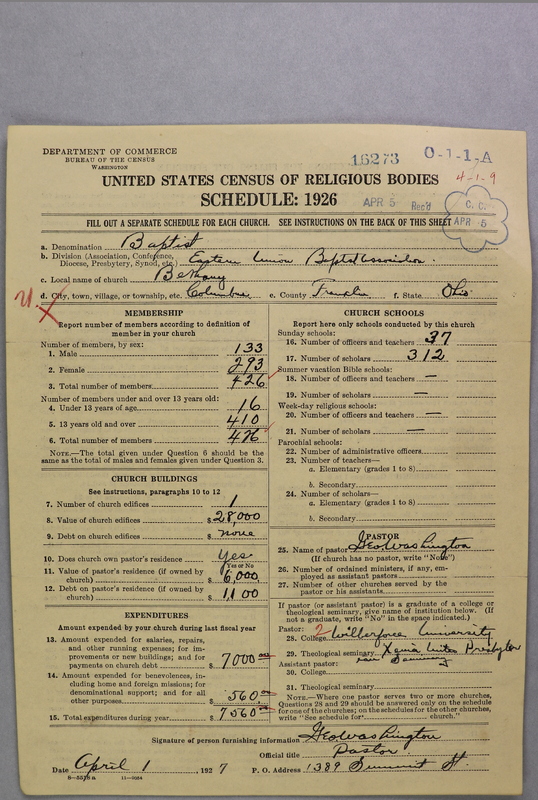 DEPARTMENT OF COMMERCE
BUREAU OF THE CENSUS
WASHINGTON
16273 0-1-1, A
4-1-9
UNITED STATES CENSUS OF RELIGIOUS BODIES
SCHEDULE: 1926
APR 5 Rec'd
C. C.
APR 5
FILL OUT A SEPARATE SCHEDULE FOR EACH CHURCH. SEE INSTRUCTIONS ON THE BACK OF THIS SHEET
a. Denomination Baptist
b. Division (Association, Conference, Diocese, Presbytery, Synod, etc.) Eastern Union Baptist Association.
c. Local name of church Bethany
d. City, town, village, or township, etc. Columbus e. County Franklin f. State Ohio
U. X
MEMBERSHIP
Report number of members according to definition of
member in your church
Number of members, by sex:
1. Male 133
2. Female 293
3. Total number of members 426
Number of members under and over 13 years old:
4. Under 13 years of age 16
5. 13 years old and over 410
6. Total number of members 426
NOTE.—The total given under Question 6 should be the
same as the total of males and females given under Question 3.
CHURCH BUILDINGS
See instructions, paragraphs 10 to 12
7. Number of church edifices 1
8. Value of church edifices $ 28,000
9. Debt on church edifices $ none
10. Does church own pastor's residence Yes
Yes or No
11. Value of pastor's residence (if owned by
church) $ 6,000
12. Debt on pastor's residence (if owned by
church) $ 1100
EXPENDITURES
Amount expended by your church during last fiscal year
13. Amount expended for salaries, repairs,
and other running expenses; for im-
provements or new building; and for
payments on church debt $ 7000
14. Amount expended for benevolences, in-
cluding home and foreign missions; for
denominational support; and for all
other purposes $ 560
15. Total expenditures during year $ 7560
CHURCH SCHOOLS
Report here only schools conducted by this church
Sunday schools:
16. Number of officers and teachers 37
17. Number of scholars 312
Summer vacation Bible schools:
18. Number of officers and teachers —
19. Number of scholars —
Week-day religious schools:
20. Number of officers and teachers —
21. Number of scholars —
Parochial schools:
22. Number of administrative officers
23. Number of teachers—
a. Elementary (grades 1 to 8)
b. Secondary
24. Number of scholars—
a. Elementary (grades 1 to 8)
b. Secondary
PASTOR
25. Name of pastor Geo Washington
(If church has no pastor, write "None")
26. Number of ordained ministers, if any, em-
ployed as assistant pastors
27. Number of other churches served by the
pastor or his assistants
If pastor (or assistant pastor) is a graduate of a college or
theological seminary, give name of institution below. (If
not a graduate, write "No" in the space indicated.)
Pastor: 2
28. College Wilberforce University
29. Theological seminary Xenia United Presbyter
ian Seminary
Assistant pastor:
30. College
31. Theological seminary
NOTE.—Where one pastor serves two or more churches,
Questions 28 and 29 should be answered only on the schedule
for one of the churches; on the schedules for the other churches,
write "See schedule for church."
Signature of person furnishing information Geo Washington
Official title Pastor
Date April 1 1927 P. O. Address 1389 Summit St.
8—5318a 11—9084